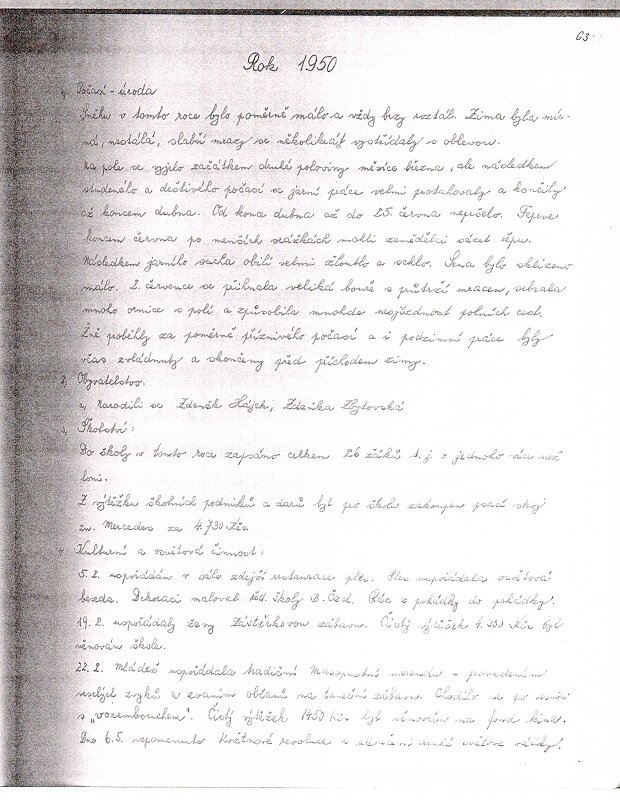 63.
Rok 1950
1, Počasí - úroda
Sněhu v tomto roce bylo poměrně málo a vždy brzy roztál. Zima byla mír-
ná, nestálá, slabší mrazy se několikrát vystřídaly s oblevou.
Na pole se vyjelo začátkem druhé poloviny měsíce března, ale následkem
studeného a deštivého počasí se jarní práce velmi protahovaly a končily
až koncem dubna. Od konce dubna až do 25. června nepršelo. Teprve
koncem června po menších srážkách mohli zemědělci sázet řepu.
Následkem jarního sucha obilí velmi žloutlo a schlo. Sena bylo sklizeno
málo. 2. července se přihnala veliká bouře s průtrží mračen, sebrala
mnoho ornice s polí a způsobila mnohde nesjízdnost polních cest.
Žně proběhly za poměrně příznivého počasí a i podzimní práce byly
včas zvládnuty a skončeny před příchodem zimy.
2, Obyvatelstvo.
a, narodili se Zdeněk Hájek, Zdeňka
3, Školství:
Do školy v tomto roce zapsáno celkem 26 žáků t. j. o jednoho více než
loni.
Z výtěžku školních podniků a darů byl pro školu zakoupen psací stroj
zn. Mercedes za 4.730 Kčs.
4, Kulturní a osvětová činnost:
5.2. uspořádán v sále zdejší restaurace ples. Ples uspořádala osvětová
beseda. Dekoraci maloval řed. školy B. Ráz z pohádky do pohádky.
19.2. uspořádaly ženy Zástěrkovou zábavu. Čistý výtěžek 4.300 Kčs byl
věnován škole.
22.2. Mládež uspořádala tradiční Masopustní merendu s provedením
veselých zvyků a zvaním občanů na taneční zábavu. Chodilo se po vesnici
s "vozembouchem". Čistý výtěžek 1450 Kčs byl věnován na fond kina.
Dne 6.5. vzpomenuto Květnové revoluce a ukončení druhé světové války.